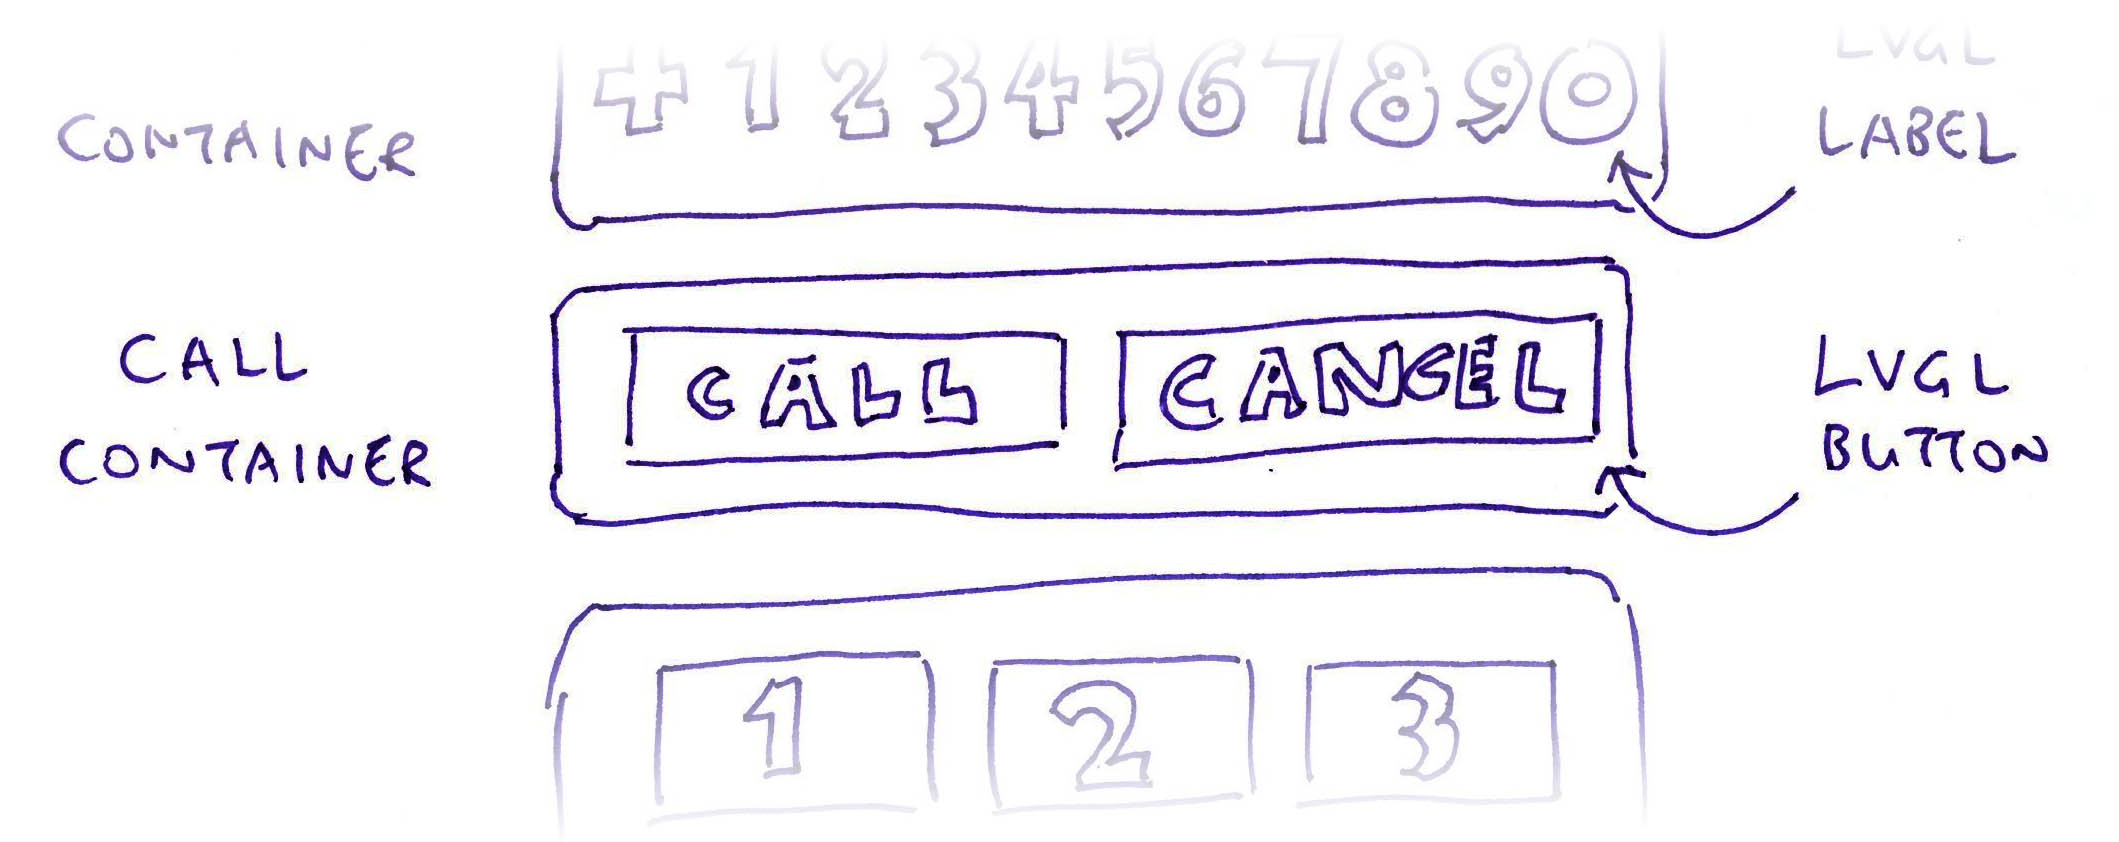 CONTAINER
+1234567890
LVGL
LABEL
CALL
CONTAINER
CALL
CANCEL
LVGL
BUTTON
1
2
3